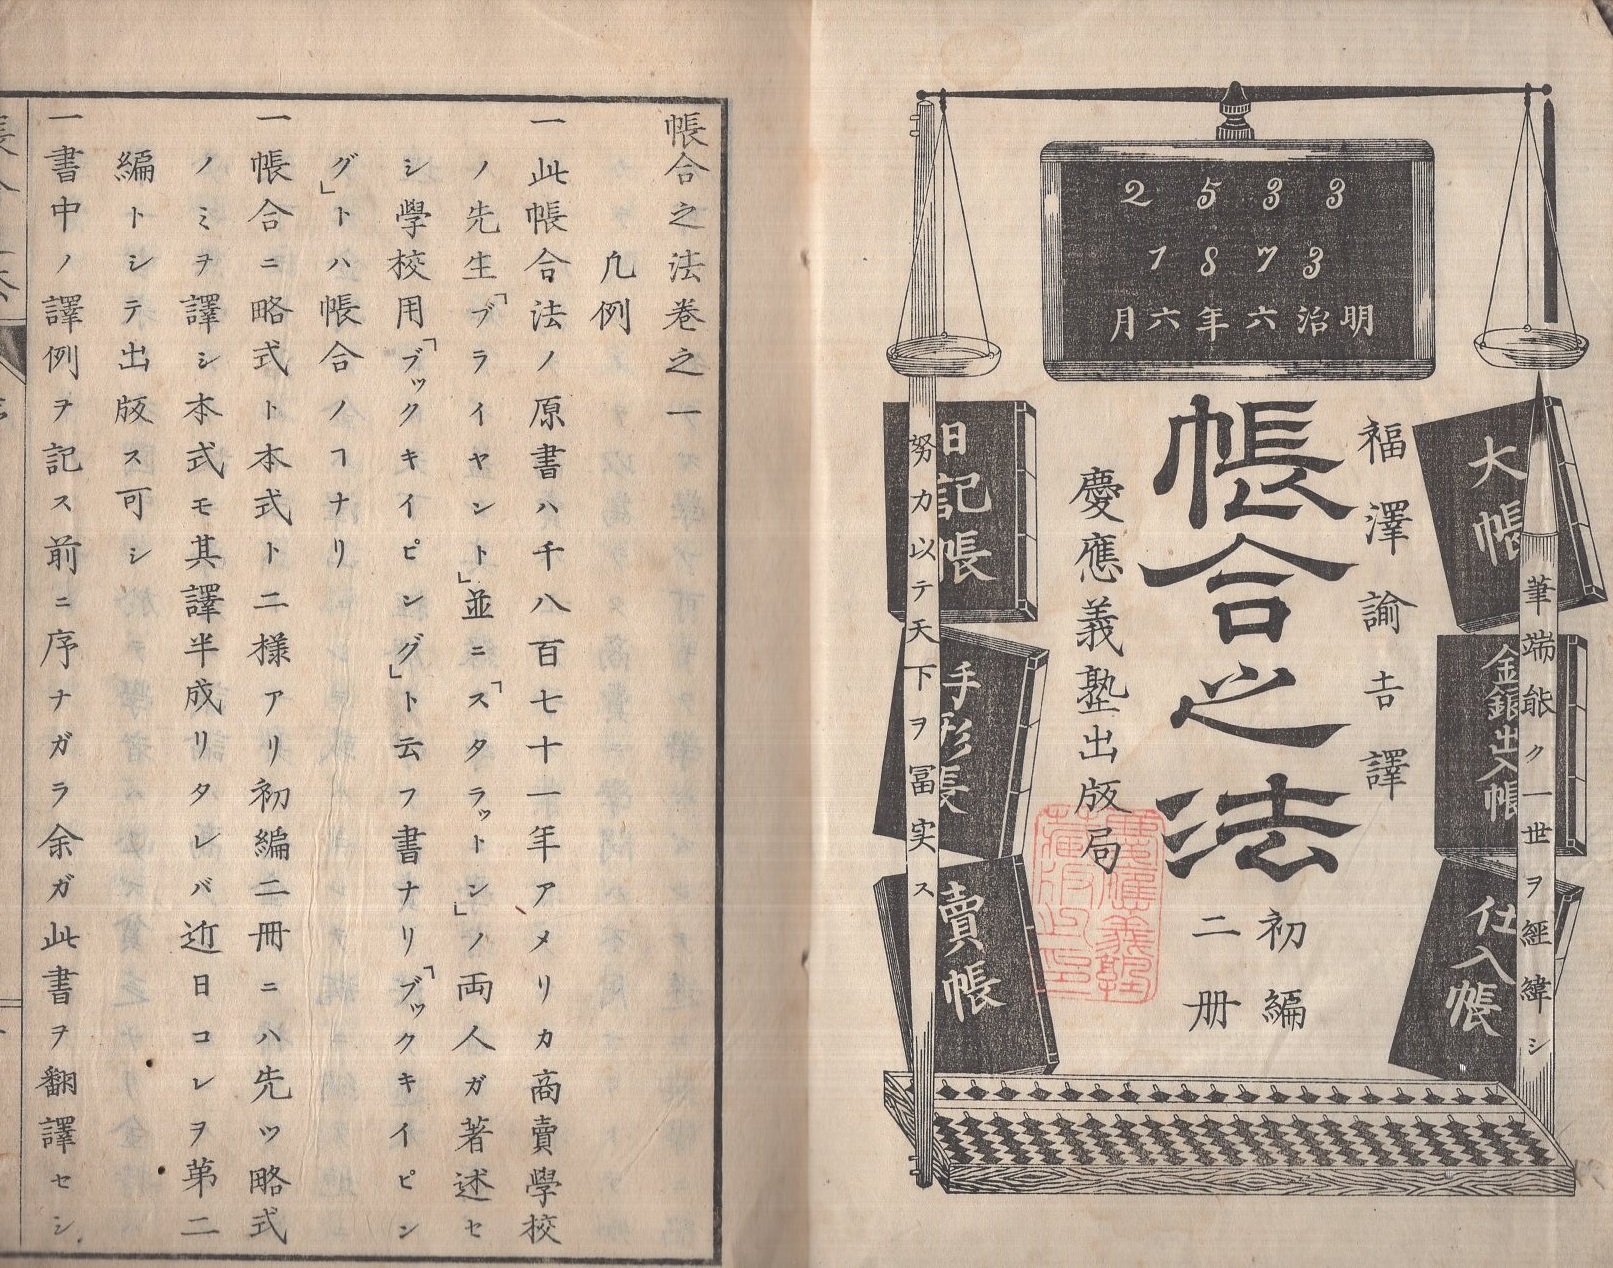 2533
1873
明治六年六月
大帳
金銀出入帳
仕入帳
筆端能ク一世ヲ經緯シ
福澤諭吉譯
帳合之法
初編
二册
慶應義塾出版局
日記帳
手形帳
賣帳
努力以テ天下ヲ冨実ス
帳合之法卷之一
凡例
一此帳合法ノ原書ハ千八百七十一年アメリカ商賣學校
ノ先生「ブライヤント」並ニ「スタラットン」ノ両人ガ著述セ
シ學校用「ブックキイピング」ト云フ書ナリ「ブックキイピン
グ」トハ帳合ノコナリ
一帳合ニ略式ト本式ト二様アリ初編二冊ニハ先ツ略式
ノミヲ譯シ本式モ其譯半成リタレバ近日コレヲ第二
編トシテ出版ス可シ
一書中ノ譯例ヲ記ス前ニ序ナガラ余ガ此書ヲ翻譯セシ